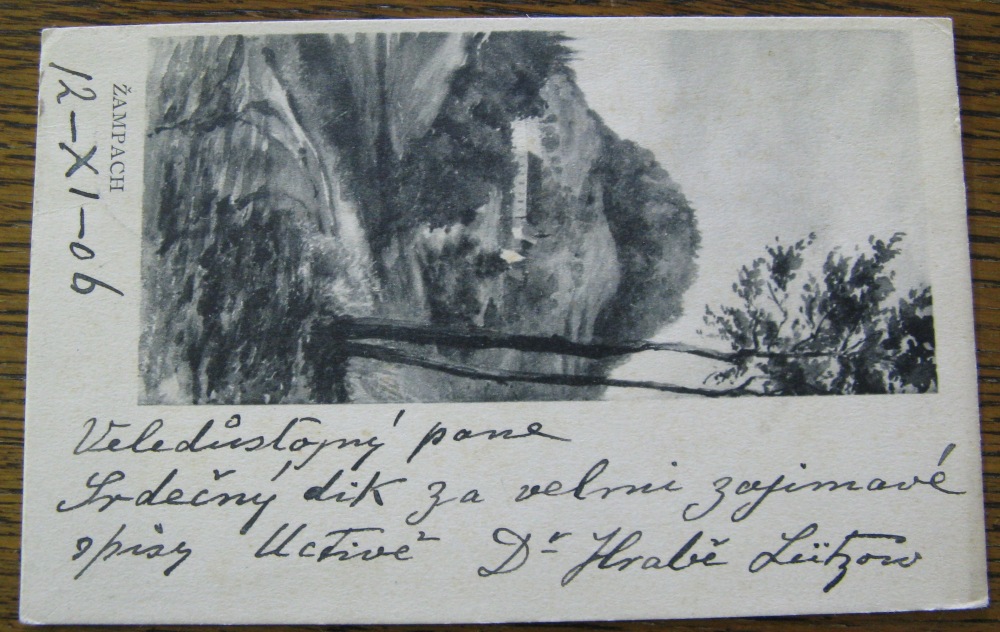 ŽAMPACH
12-XI-06
Veledůstojný pane
Srdečný dik za velmi zajimavé
spisy Uctivě Dr Hrabě Lützow